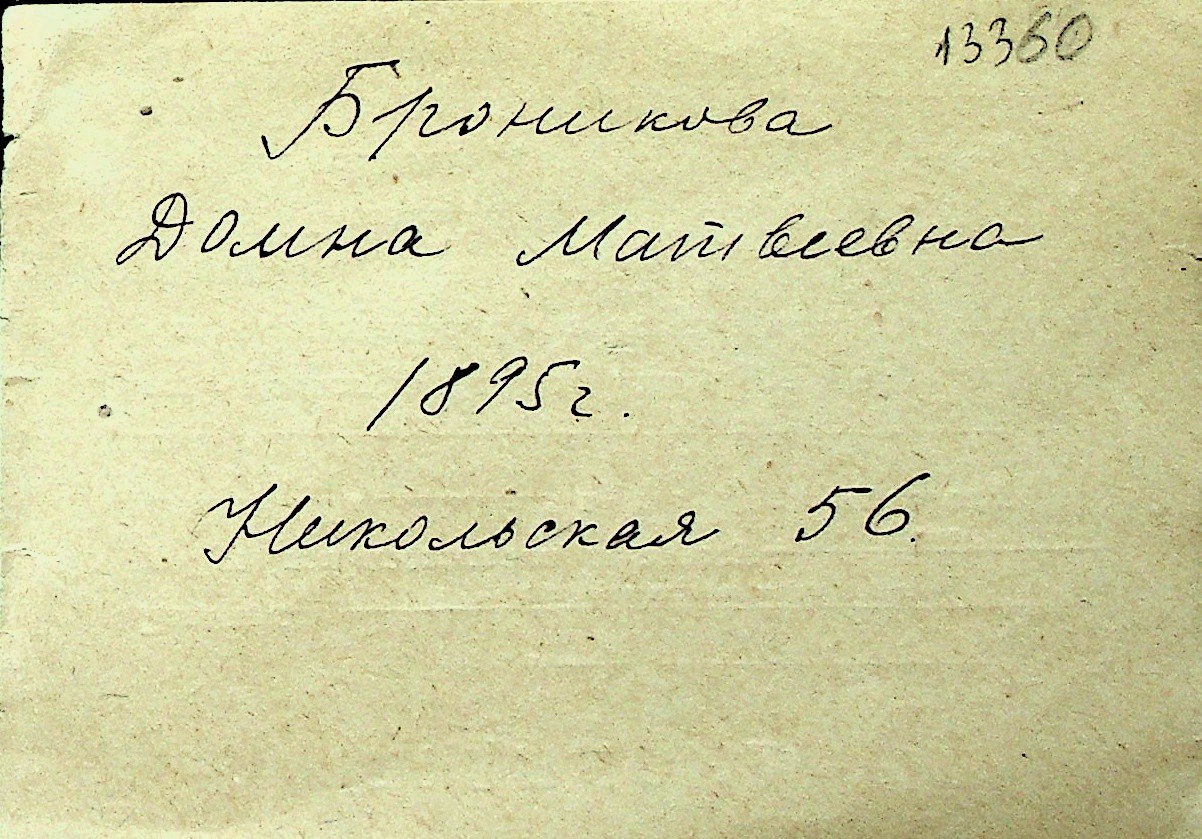 13360
Броникова
Домна Матвеевна
1895г.
Никольская 56.